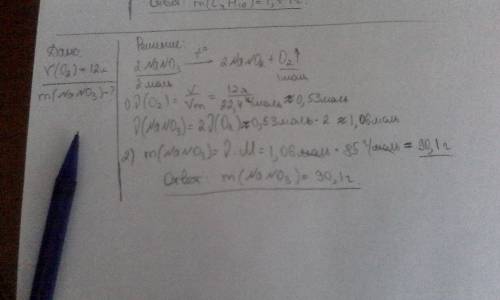 Ответ: m(C₂H₁₀) = 1,
Дано:
V(O₂) = 12л
m(NaNO₃) - ?
Решение:
2NaNO₃ —t°→ 2NaNO₂ + O₂↑
2моль 1моль
1) ν(O₂) = V/Vm = 12л/22,4 л/моль ≈ 0,53моль
ν(NaNO₃) = 2ν(O₂) ≈ 0,53моль · 2 ≈ 1,06моль
2) m(NaNO₃) = ν · M = 1,06моль · 85 г/моль = 90,1г
Ответ: m(NaNO₃) = 90,1г